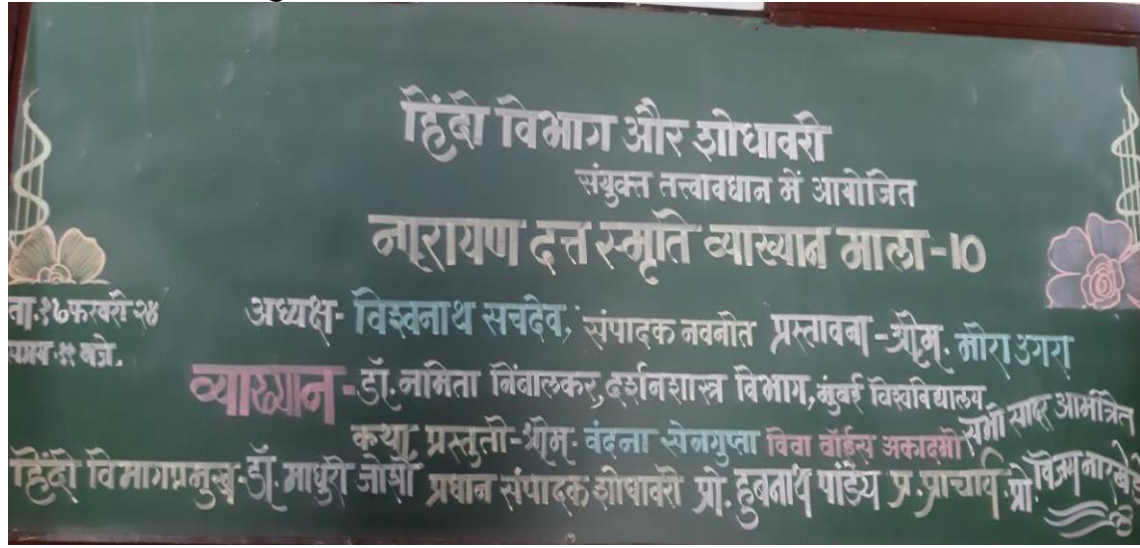 हिंदी विभाग और शोधावरी
संयुक्त तत्त्वावधान में आयोजित
नारायण दत्त स्मृति व्याख्यान माला-10
ता.१७ फरवरी २४
समय.११ बजे.
अध्यक्ष- विश्वनाथ सचदेव, संपादक नवनीत प्रस्तावना-श्रीम. मीरा उगरा
व्याख्यान-डॉ. नामिता निंबालकर, दर्शनशास्त्र विभाग, मुंबई विश्वविद्यालय
कथा प्रस्तुती-श्रीम. वंदना सेनगुप्ता विवा वॉईस अकादमी
सभी सादर आमंत्रित
हिंदी विभागप्रमुख-डॉ. माधुरी जोशी प्रधान संपादक शोधावरी प्रो. हुबनाथ पांडेय प्र.प्राचार्य-प्रो. विजय